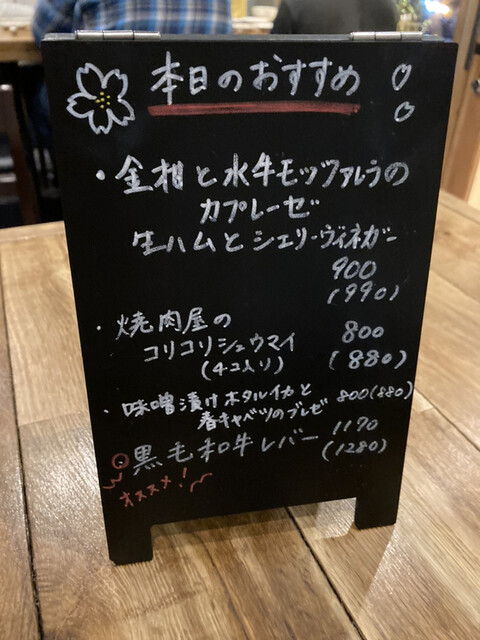 本日のおすすめ
・金柑と水牛モッツァレラの
カプレーゼ
生ハムとシェリーヴィネガー
900
(990)
・焼肉屋の 800
コリコリシュウマイ (880)
(4コ入り)
・味噌漬けホタルイカと 800(880)
春キャベツのブレゼ
黒毛和牛レバー 1170
(1280)
オススメ!